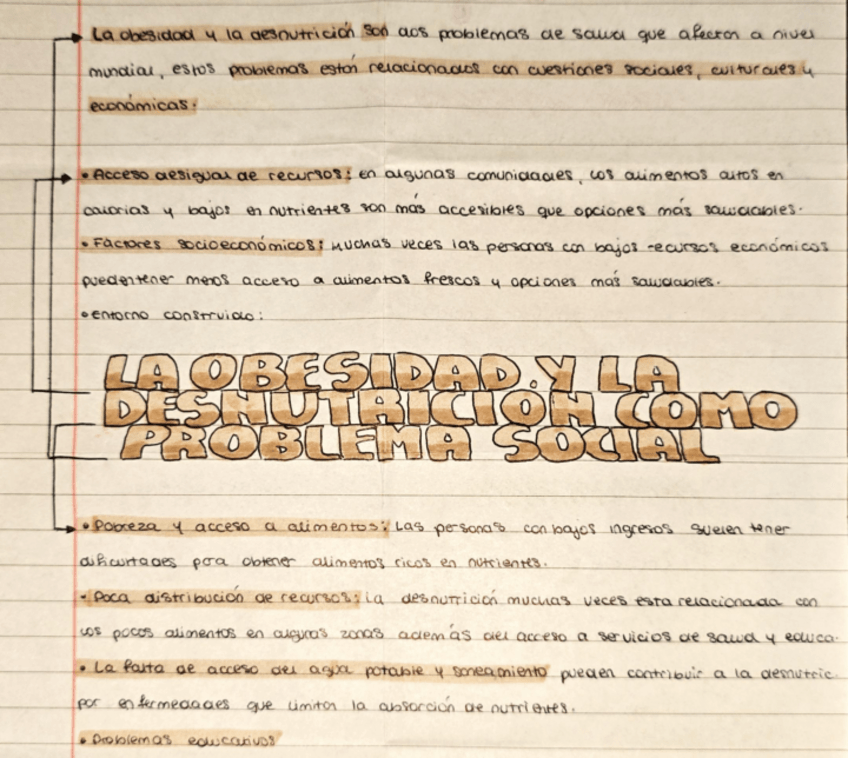 La obesidad y la desnutrición son dos problemas de salud que afectan a nivel
mundial, estos problemas están relacionados con cuestiones sociales, culturales y
económicas.
• Acceso desigual de recursos: en algunas comunidades, los alimentos altos en
calorias y bajos en nutrientes son más accesibles que opciones más saludables.
• Factores socioeconómicos: Muchas veces las personas con bajos recursos económicos
pueden tener menos acceso a alimentos frescos y opciones más saludables.
• entorno construido:
LA OBESIDAD Y LA
DESNUTRICIÓN COMO
PROBLEMA SOCIAL
• Pobreza y acceso a alimentos: Las personas con bajos ingresos suelen tener
dificultades para obtener alimentos ricos en nutrientes.
• Poca distribución de recursos: la desnutrición muchas veces esta relacionada con
los pocos alimentos en algunas zonas además del acceso a servicios de salud y educa.
• La falta de acceso del agua potable y saneamiento pueden contribuir a la desnutric.
por enfermedades que limitan la absorción de nutrientes.
• Problemas educativos